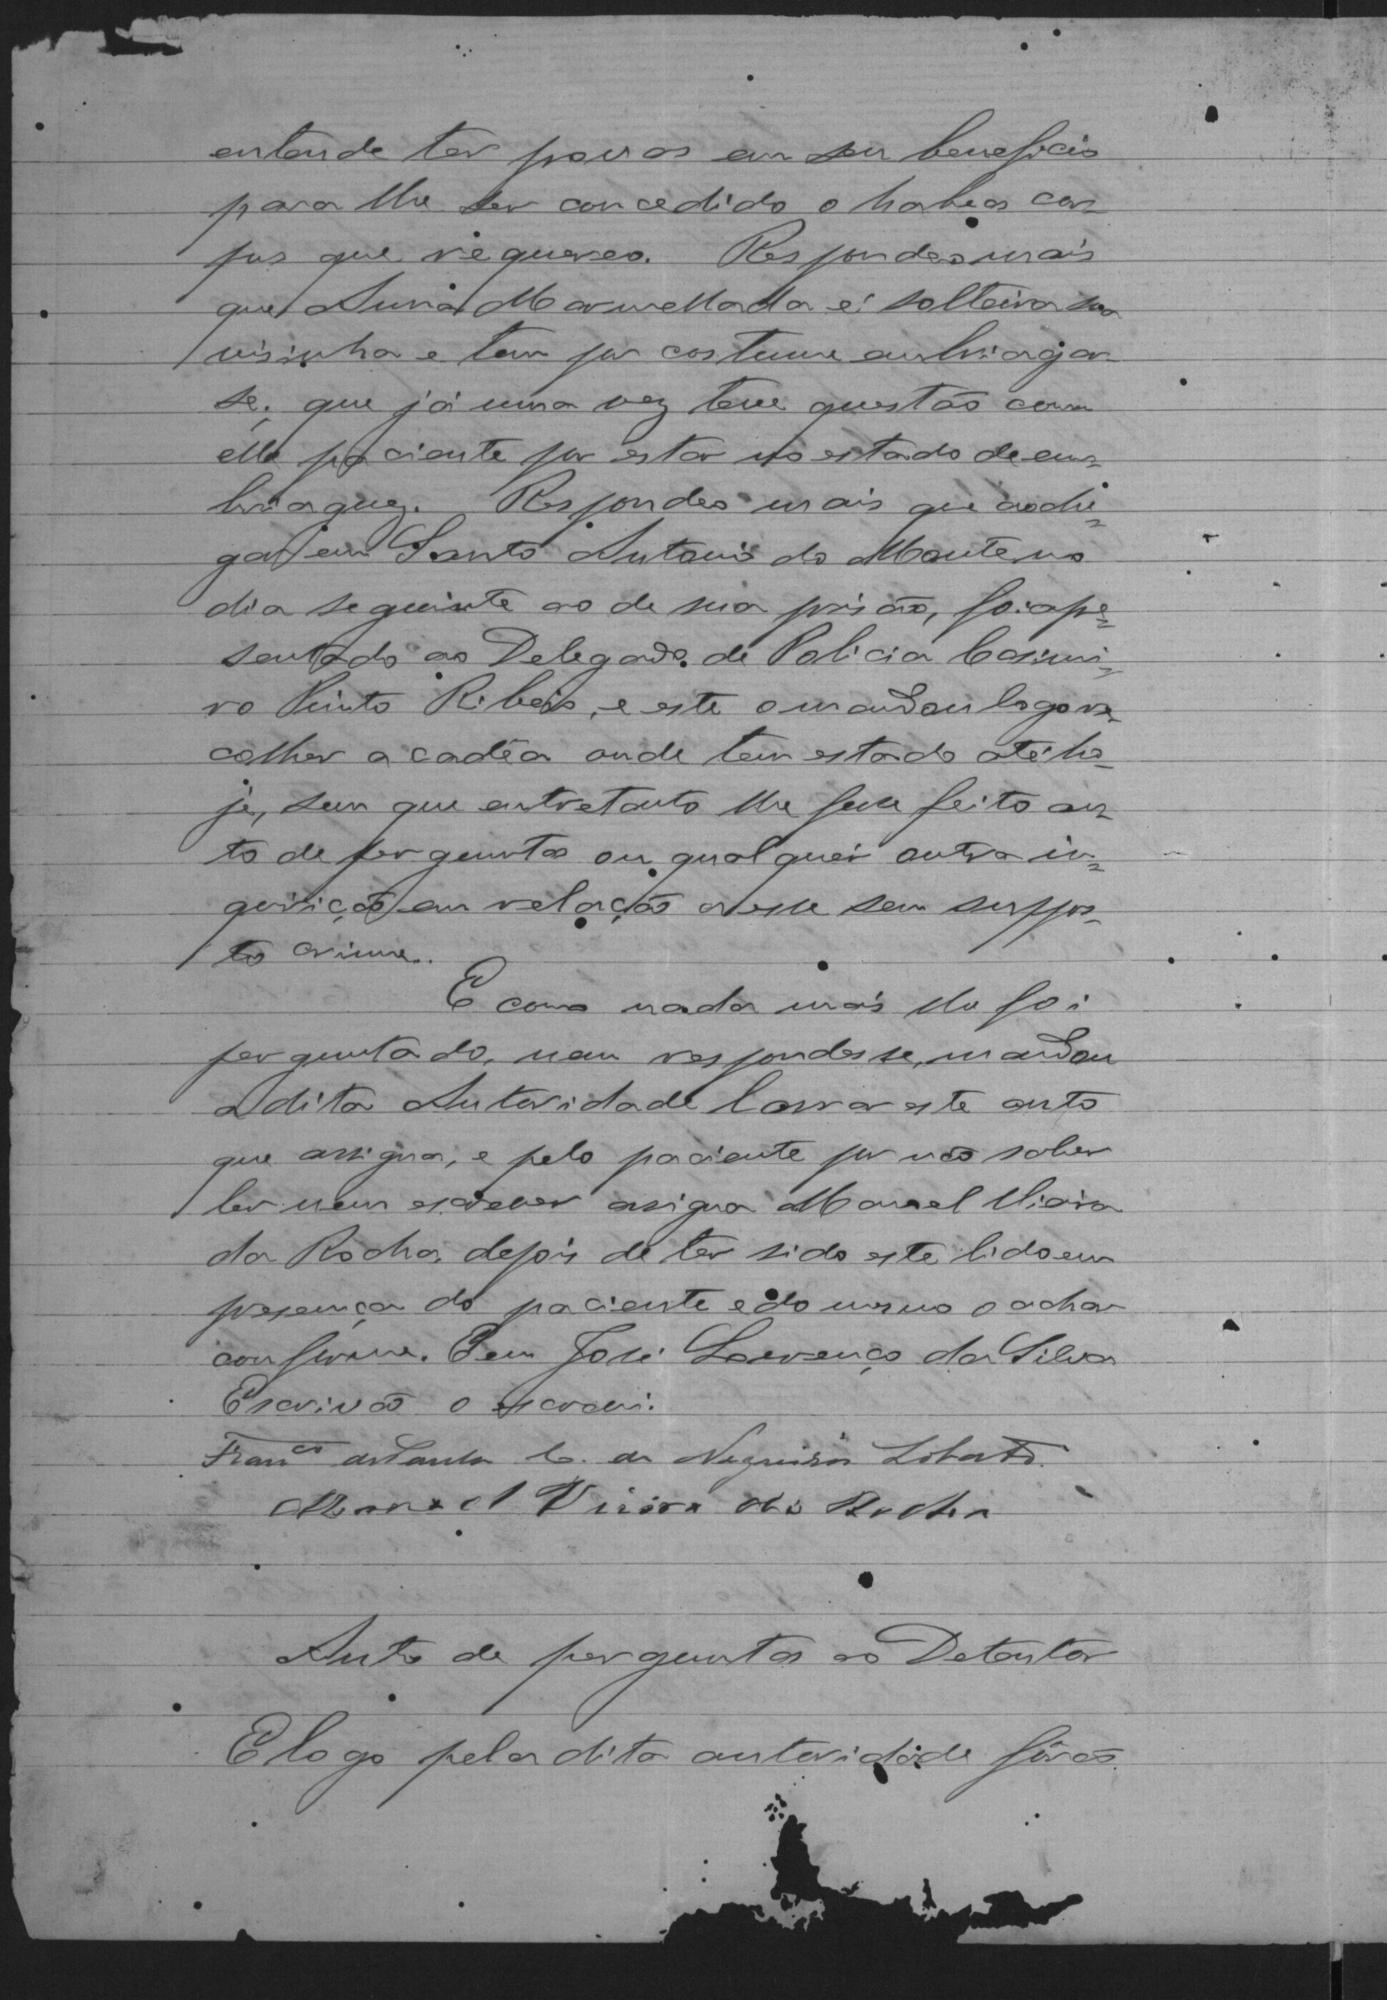 entende ter provas em seu beneficio
para lhe ser concedido o habeas cor=
pus que requereo. Respondeo mais
que Anna Marmellada é solteira sua
visinha e tem por costume embriagar
se; que já uma vez teve questão com
elle paciente por estar no estado de em=
briaguez. Respondeo mais que ao che=
gar em Santo Antonio do Monte no
dia seguinte ao de sua prisão, foi apre=
sentado ao Delegado de Policia Casimi=
ro Pinto Ribeiro, e este o mandou logo re=
colher a cadêa onde tem estado até ho=
je, sem que entretanto lhe fosse feito au=
to de perguntas ou qualquer outra in=
quirição em relação a esse seu suppos=
to crime.
E como nada mais lhe foi
perguntado, nem respondesse, mandou
a dita Autoridade lavrar este auto
que assigna, e pelo paciente por não saber
ler nem escrever assigna Manoel Vieira
da Rocha, depois de ter sido este lido em
presença do paciente e do mesmo o achar
conforme. E eu José Lourenço da Silva
Escrivão o escrevi.
Fran.co de Paula C. de Negreiros Lobato.
Manoel Vieira da Rocha
Auto de perguntas ao Detentor
E logo pela dita autoridade forão